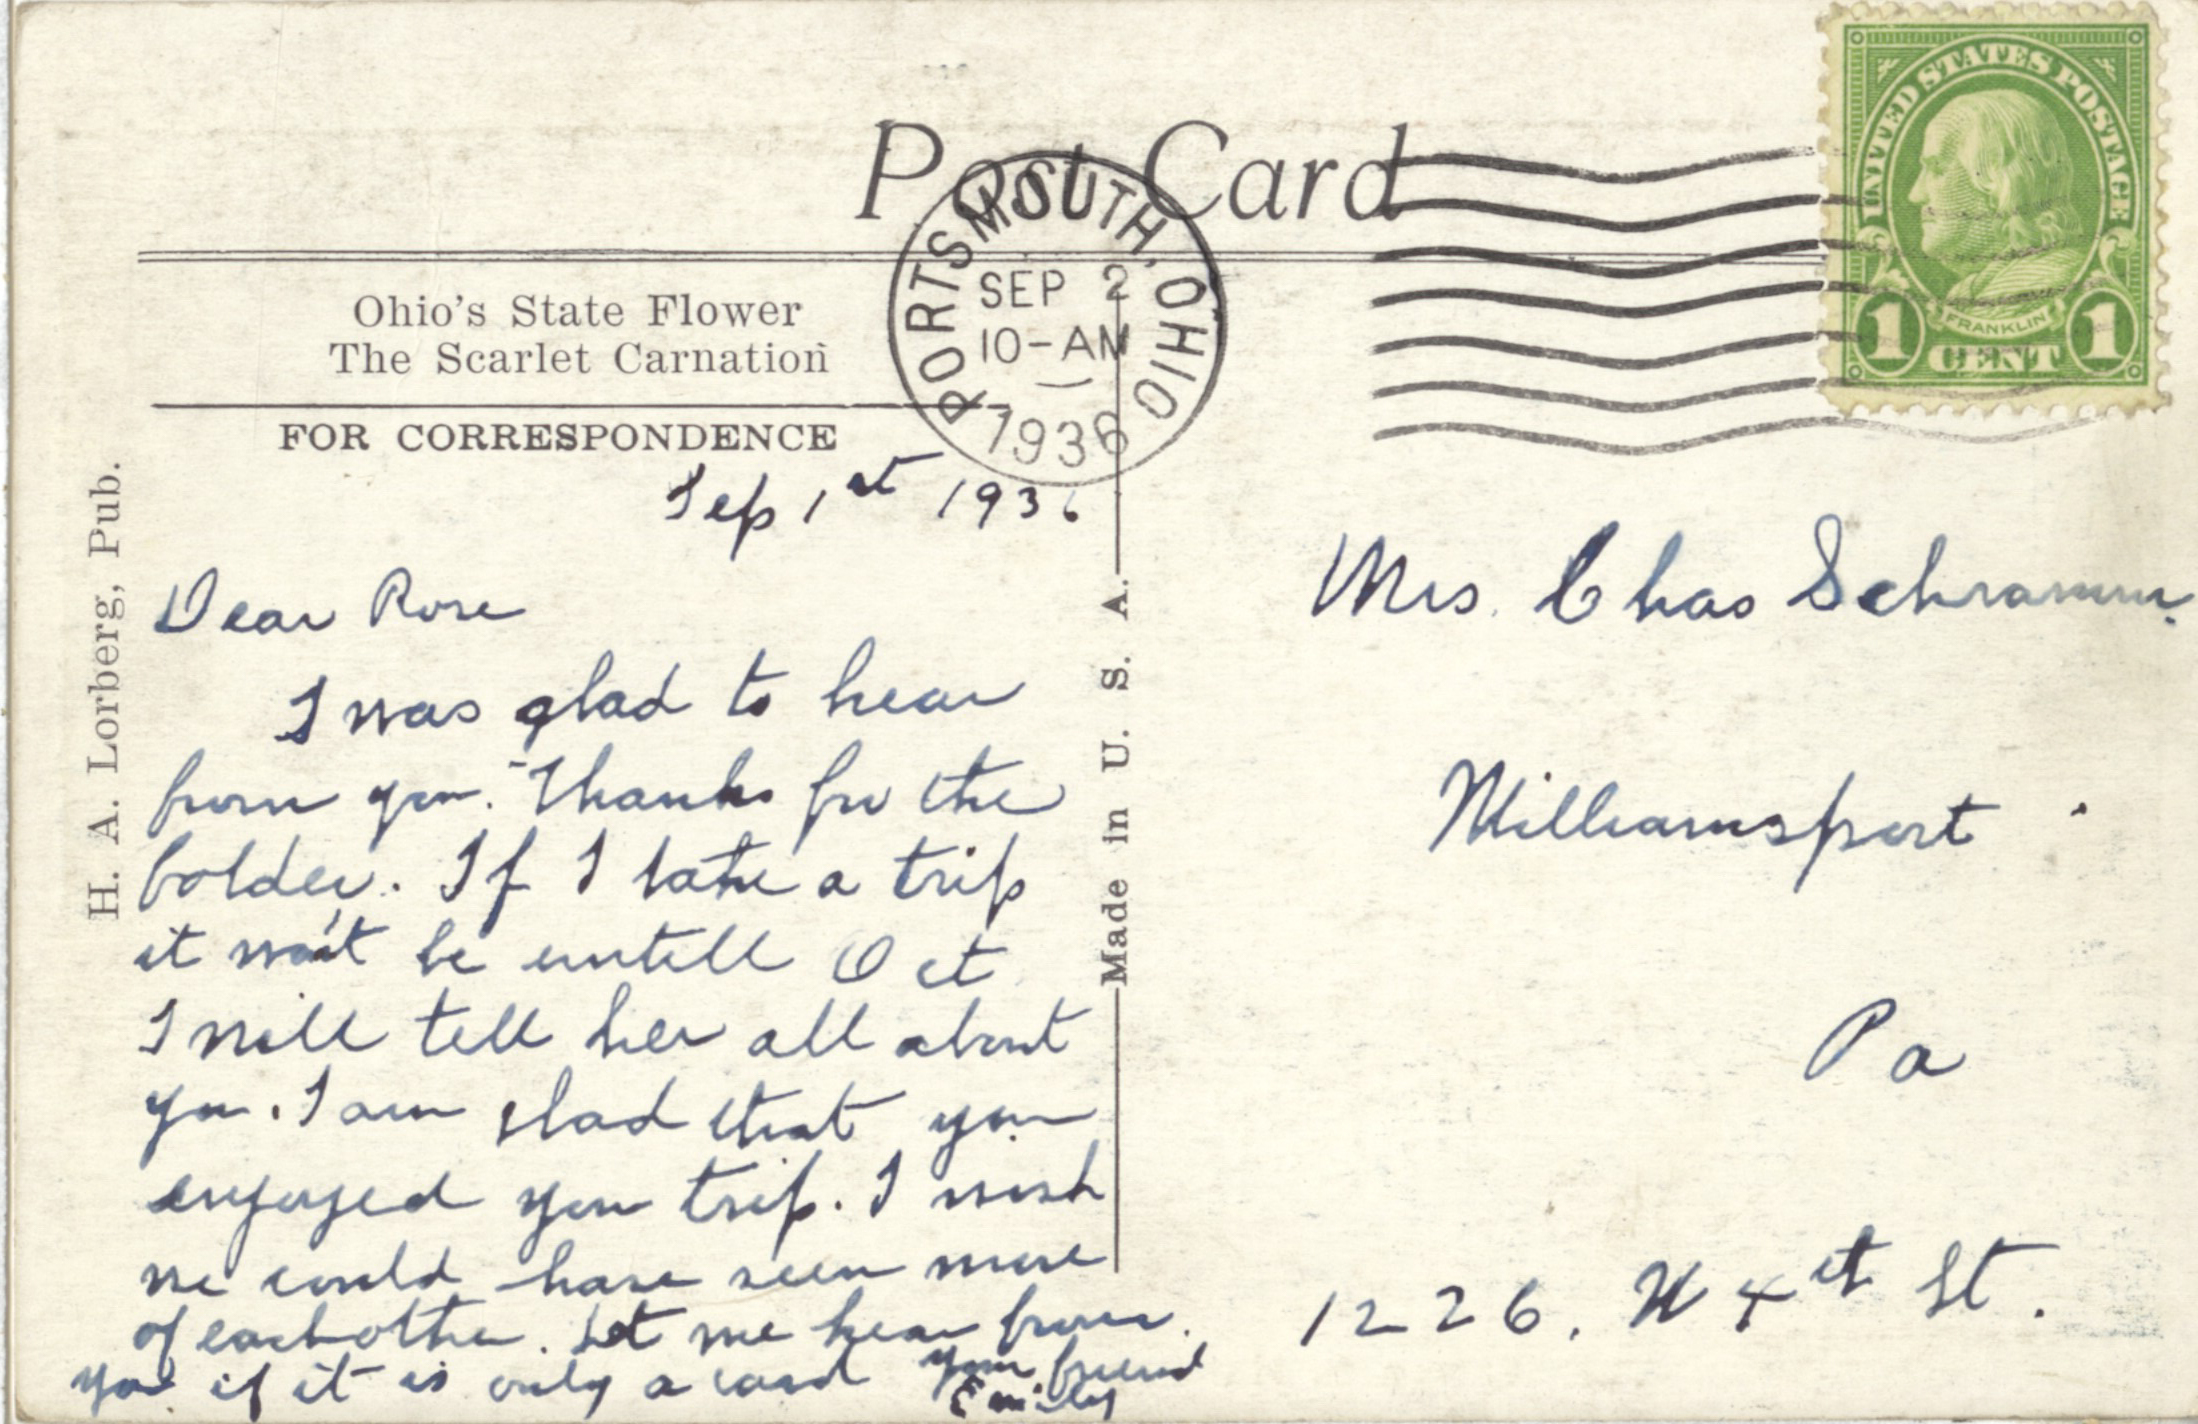 Post Card
UNITED STATES POSTAGE
FRANKLIN
1 CENT 1
PORTSMOUTH, OHIO
SEP 2
10-AM
1936
Ohio's State Flower
The Scarlet Carnation
FOR CORRESPONDENCE
H. A. Lorberg, Pub.
Made in U. S. A.
Sep 1st 1936
Dear Rose
I was glad to hear
from you. Thanks for the
bolder. If I take a trip
it wo'nt be untill Oct
I will tell her all about
you. I am glad that you
enjoyed you trip. I wish
we could have seen more
of eachother. Let me hear from
you if it is only a card your friend
Emily
Mrs. Chas Schramm.
Williamsport
Pa
1226. W 4th St.